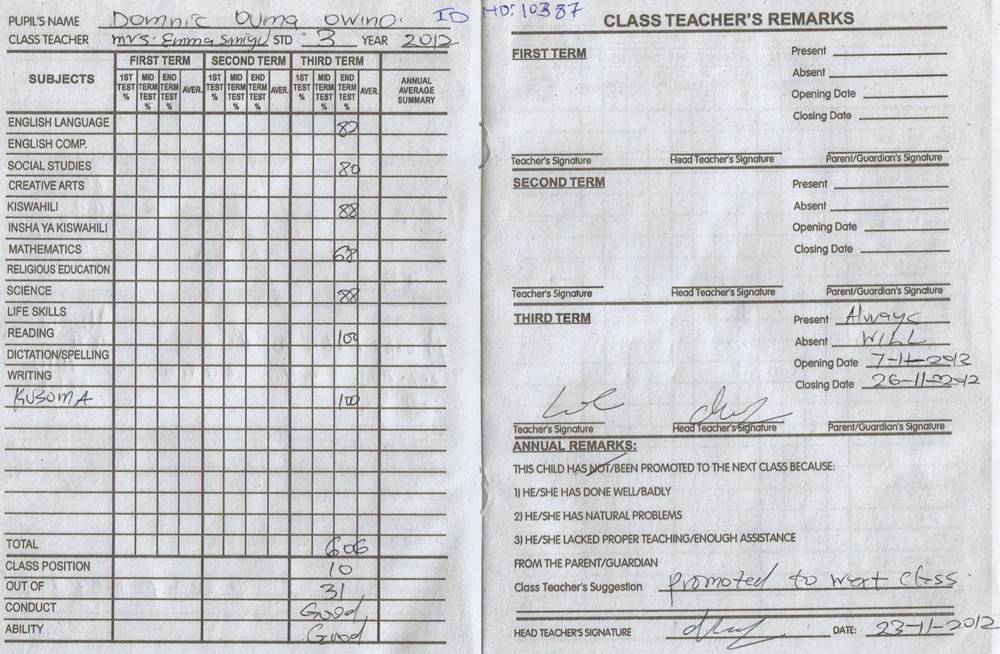 PUPIL'S NAME Domnic Ouma Owino. ID NO: 10387
CLASS TEACHER Mrs. Emma STD 3 YEAR 2012
SUBJECTS FIRST TERM SECOND TERM THIRD TERM ANNUAL AVERAGE SUMMARY
1ST TEST % MID TERM TEST % END TERM TEST % AVER. 1ST TEST % MID TERM TEST % END TERM TEST % AVER. 1ST TEST % MID TERM TEST % END TERM TEST % AVER.
ENGLISH LANGUAGE 82
ENGLISH COMP.
SOCIAL STUDIES 80
CREATIVE ARTS
KISWAHILI 88
INSHA YA KISWAHILI
MATHEMATICS 68
RELIGIOUS EDUCATION
SCIENCE 88
LIFE SKILLS
READING 100
DICTATION/SPELLING
WRITING
KUSOMA 100
TOTAL 606
CLASS POSITION 10
OUT OF 31
CONDUCT Good
ABILITY Good
CLASS TEACHER'S REMARKS
FIRST TERM
Present
Absent
Opening Date
Closing Date
Teacher's Signature Head Teacher's Signature Parent/Guardian's Signature
SECOND TERM
Present
Absent
Opening Date
Closing Date
Teacher's Signature Head Teacher's Signature Parent/Guardian's Signature
THIRD TERM
Present Always
Absent WILL
Opening Date
Closing Date 26-11-2012
Teacher's Signature Head Teacher's Signature Parent/Guardian's Signature
ANNUAL REMARKS:
THIS CHILD HAS NOT/BEEN PROMOTED TO THE NEXT CLASS BECAUSE:
1) HE/SHE HAS DONE WELL/BADLY
2) HE/SHE HAS NATURAL PROBLEMS
3) HE/SHE LACKED PROPER TEACHING/ENOUGH ASSISTANCE
FROM THE PARENT/GUARDIAN
Class Teacher's Suggestion promoted to next class.
HEAD TEACHER'S SIGNATURE DATE: 23-11-2012